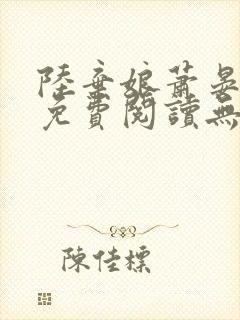 陸棄娘蕭晏
免費閱讀無
陳佳標